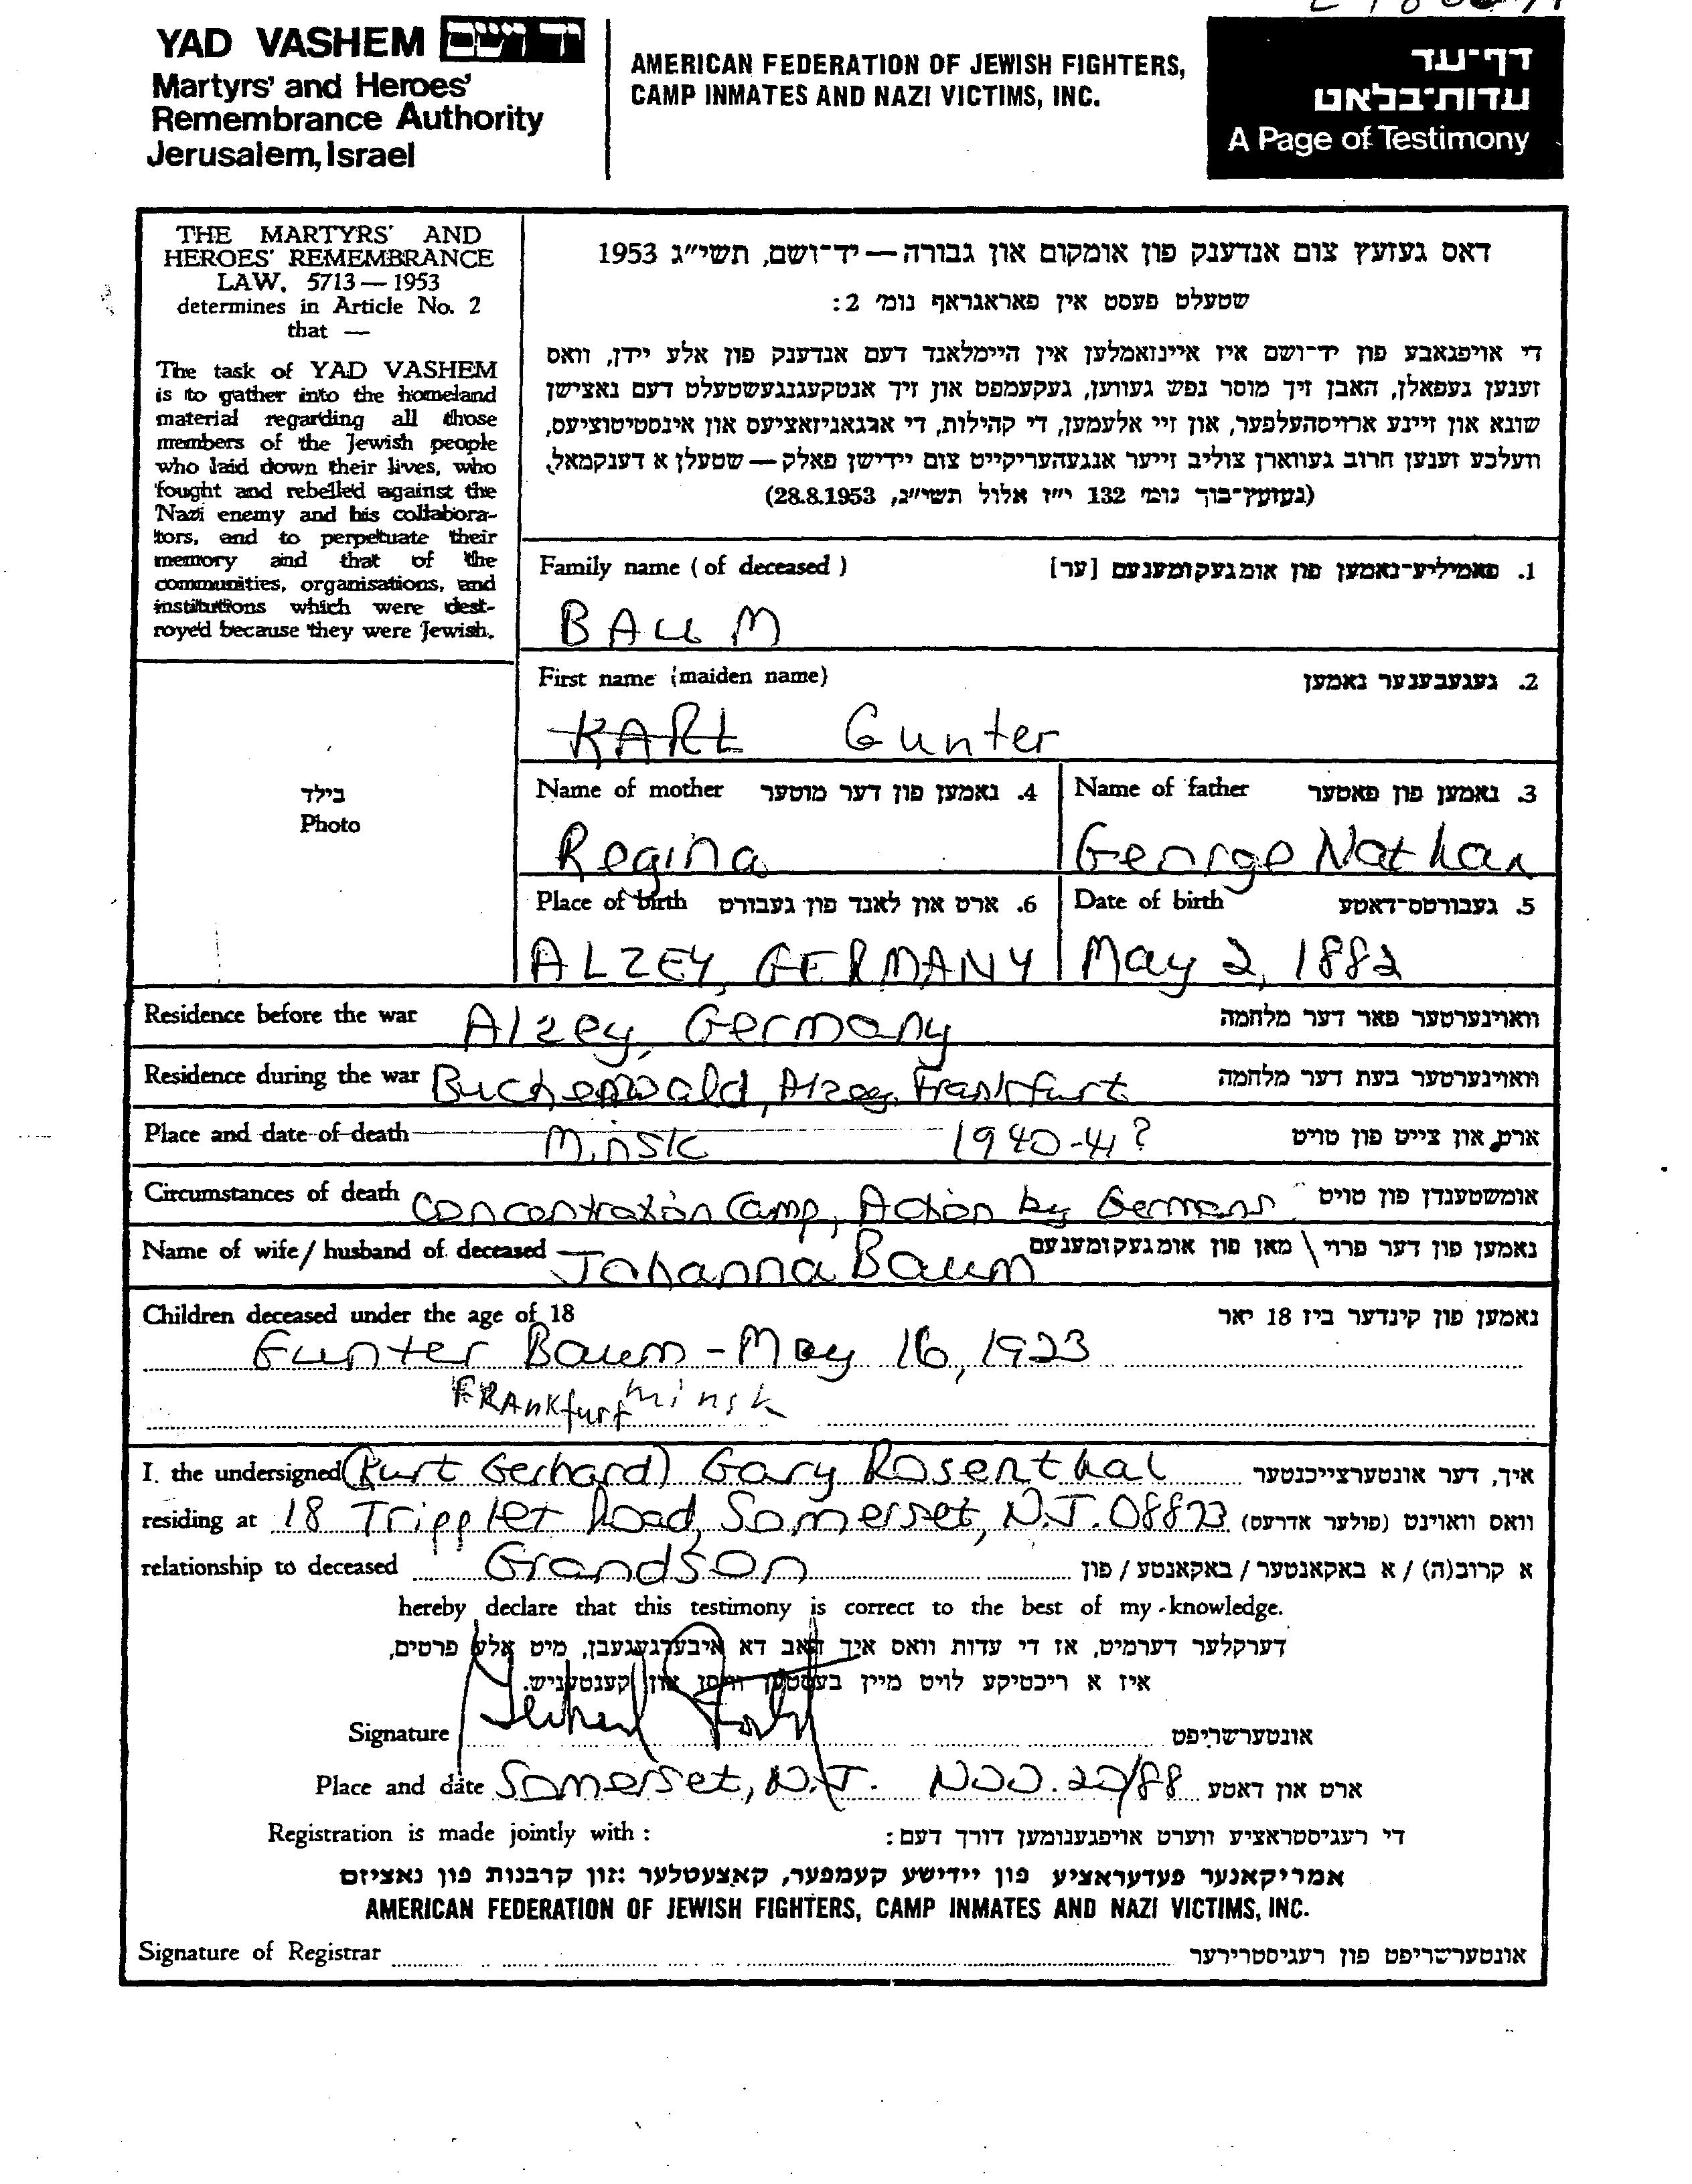 YAD VASHEM יד ושם
Martyrs' and Heroes'
Remembrance Authority
Jerusalem, Israel
AMERICAN FEDERATION OF JEWISH FIGHTERS,
CAMP INMATES AND NAZI VICTIMS, INC.
דף־עד
עדות־בלאט
A Page of Testimony
THE MARTYRS' AND
HEROES' REMEMBRANCE
LAW, 5713 — 1953
determines in Article No. 2
that —
The task of YAD VASHEM
is to gather into the homeland
material regarding all those
members of the Jewish people
who laid down their lives, who
fought and rebelled against the
Nazi enemy and his collabora-
tors, and to perpetuate their
memory and that of the
communities, organisations, and
institutions which were dest-
royed because they were Jewish.
דאס געזעץ צום אנדענק פון אומקום און גבורה — יד־ושם, תשי״ג 1953
שטעלט פעסט אין פאראגראף נומ׳ 2:
די אויפגאבע פון יד־ושם איז איינזאמלען אין היימלאנד דעם אנדענק פון אלע יידן, וואס
זענען געפאלן, האבן זיך מוסר נפש געווען, געקעמפט און זיך אנטקעגנגעשטעלט דעם נאצישן
שונא און זיינע ארויסהעלפער, און זיי אלעמען, די קהילות, די ארגאניזאציעס און אינסטיטוציעס,
וועלכע זענען חרוב געווארן צוליב זייער אנגעהעריקייט צום יידישן פאלק — שטעלן א דענקמאל.
(געזעץ־בוך נומ׳ 132 י״ז אלול תשי״ג, 28.8.1953)
Family name (of deceased) 1. פאמיליע־נאמען פון אומגעקומענעם [ער]
BAUM
First name (maiden name) 2. געגעבענער נאמען
KARL Gunter
Name of mother 4. נאמען פון דער מוטער Name of father 3. נאמען פון פאטער
Regina George Nathan
Place of birth 6. ארט און לאנד פון געבורט Date of birth 5. געבורטס־דאטע
ALZEY, GERMANY May 2, 1882
בילד
Photo
Residence before the war Alzey, Germany וואוינערטער פאר דער מלחמה
Residence during the war Buchenwald, Alzey, Frankfurt וואוינערטער בעת דער מלחמה
Place and date of death Minsk 1940-41? ארט און צייט פון טויט
Circumstances of death Concentration Camp, Action by Germans אומשטענדן פון טויט
Name of wife / husband of deceased Johanna Baum נאמען פון דער פרוי \ מאן פון אומגעקומענעם
Children deceased under the age of 18 נאמען פון קינדער ביז 18 יאר
Gunter Baum - May 16, 1923
FRANKfurt Minsk
I, the undersigned (Kurt Gerhard) Gary Rosenthal איך, דער אונטערצייכנטער
residing at 18 Tripplet Road, Somerset, N.J. 08873 וואס וואוינט (פולער אדרעס)
relationship to deceased Grandson א קרוב(ה) / א באקאנטער / באקאנטע / פון
hereby declare that this testimony is correct to the best of my knowledge.
דערקלער דערמיט, אז די עדות וואס איך האב דא איבערגעגעבן, מיט אלע פרטים,
איז א ריכטיקע לויט מיין בעסטען וויסן און קענטעניש.
Signature אונטערשריפט
Place and date Somerset, N.J. Nov. 20/88 ארט און דאטע
Registration is made jointly with : די רעגיסטראציע ווערט אויפגענומען דורך דעם:
אמריקאנער פעדעראציע פון יידישע קעמפער, קאצעטלער און קרבנות פון נאציזם
AMERICAN FEDERATION OF JEWISH FIGHTERS, CAMP INMATES AND NAZI VICTIMS, INC.
Signature of Registrar אונטערשריפט פון רעגיסטרירער